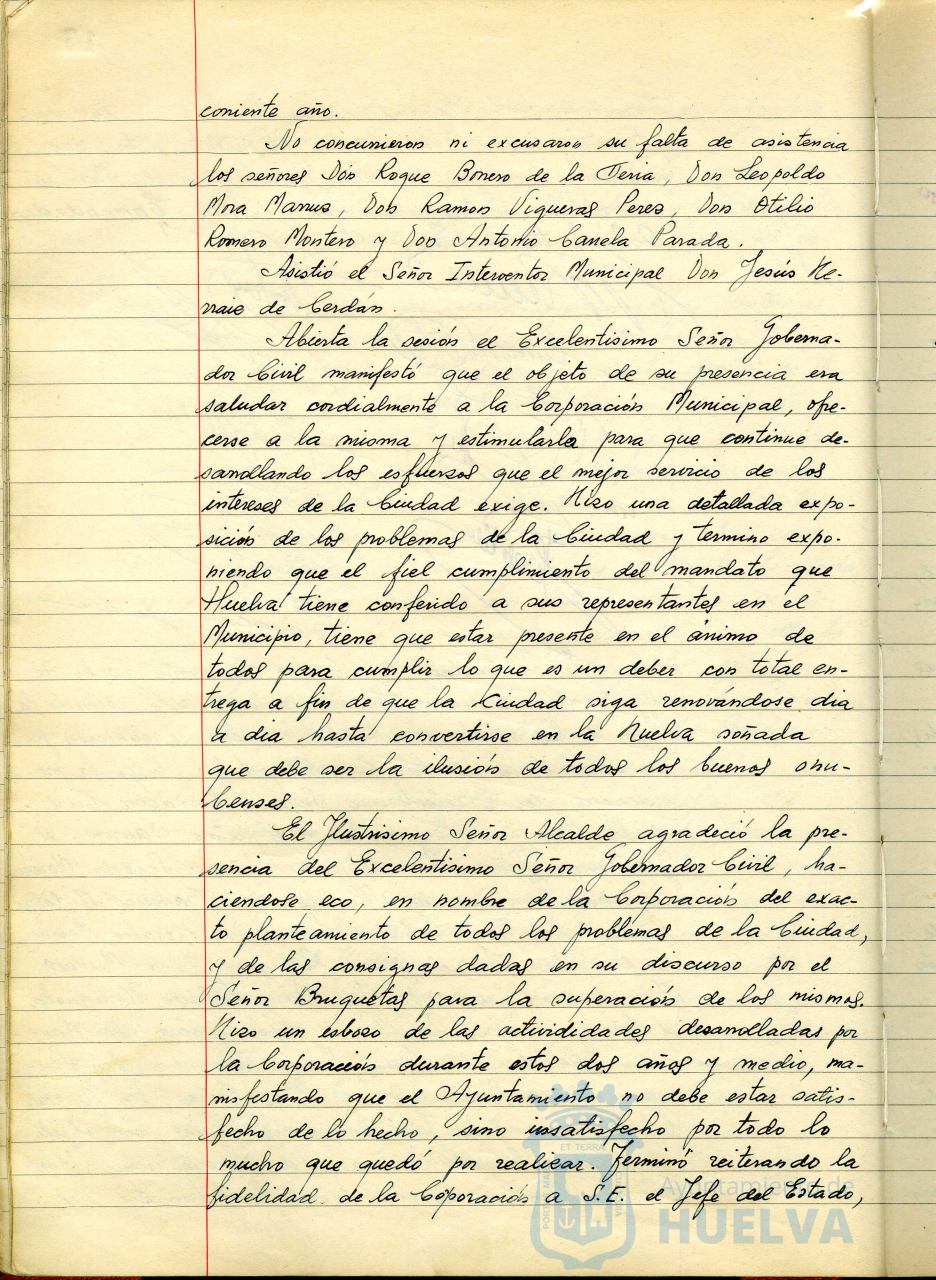 corriente año.
No concurrieron ni excusaron su falta de asistencia
los señores Don Roque Borrero de la Feria, Don Leopoldo
Mora Marrus, Don Ramon Vigueras Peres, Don Otilio
Romero Montero y Don Antonio Canela Parada.
Asistió el Señor Interventor Municipal Don Jesús He-
rraic de Cerdán.
Abierta la sesión el Excelentisimo Señor Goberna-
dor Civil manifestó que el objeto de su presencia era
saludar cordialmente a la Corporación Municipal, ofre-
cerse a la misma y estimularla para que continue de-
sarrollando los esfuersos que el mejor servicio de los
intereses de la Ciudad exige. Hiso una detallada expo-
sición de los problemas de la Ciudad y termino expo-
niendo que el fiel cumplimiento del mandato que
Huelva tiene conferido a sus representantes en el
Municipio, tiene que estar presente en el ánimo de
todos para cumplir lo que es un deber con total en-
trega a fin de que la Ciudad siga renovándose dia
a dia hasta convertirse en la Huelva soñada
que debe ser la ilusión de todos los buenos onu-
benses.
El Ilustrisimo Señor Alcalde agradeció la pre-
sencia del Excelentisimo Señor Gobernador Civil, ha-
ciendose eco, en nombre de la Corporación del exac-
to planteamiento de todos los problemas de la Ciudad,
y de las consignas dadas en su discurso por el
Señor Bruquetas para la superación de los mismos.
Hiso un esboso de las activididades desarrolladas por
la Corporación durante estos dos años y medio, ma-
nisfestando que el Ayuntamiento no debe estar satis-
fecho de lo hecho, sino insatisfecho por todo lo
mucho que quedó por realizar. Terminó reiterando la
fidelidad de la Coporación a S.E. el Jefe del Estado,
Ayuntamiento de
HUELVA